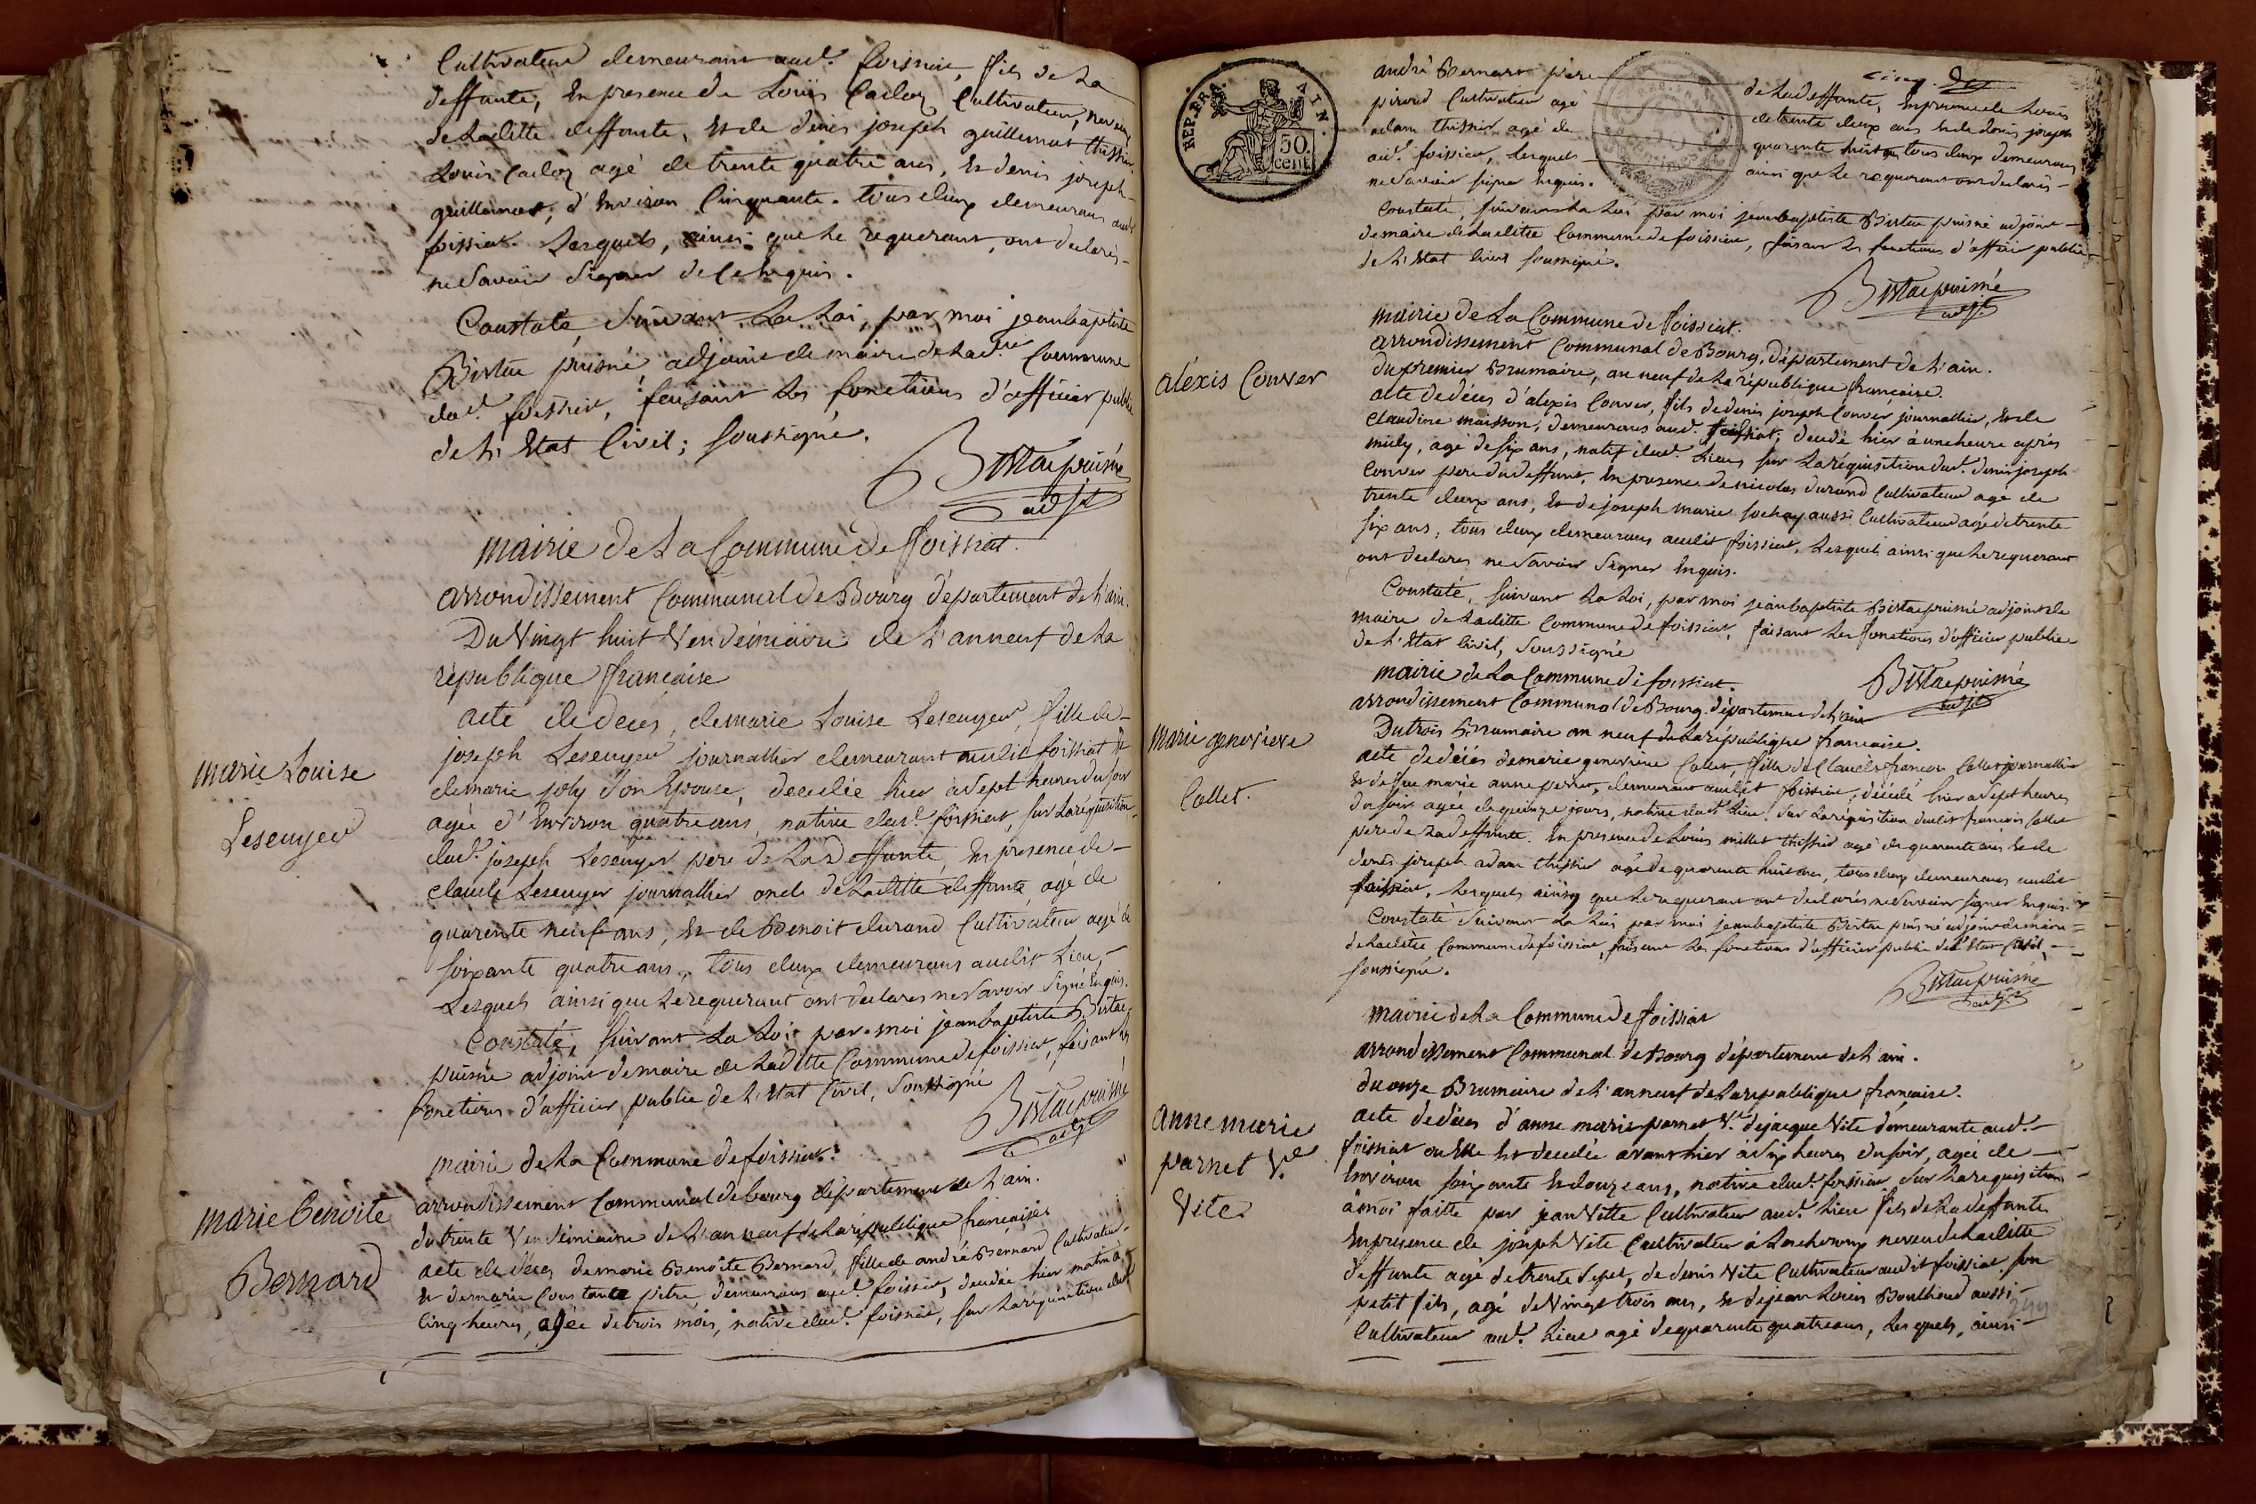 Cultivateur demeurant aud.t foissiat, fils de La
deffunte, En presence de Louis Cadoz Cultivateur, neveu
de Laditte deffunte, Et de denis joseph guillemot thissier
Louis Cadoz agé de trente quatre ans, Et denis joseph
guillemot, d'Environ Cinquante. tous deux demeurans aud.t
foissiat. Lesquels, ainsi que Le requerant, ont declarés
ne Savoir Signer de Ce Enquis.
Constaté Suivant La Loi, par moi jeanbaptiste
puisné adjoint de maire de Lad.te Commune
dud.t foissiat, faisant Les fonctions d'officier public
de L'Etat Civil; Soussigné.
puisné
adjt
mairie de La Commune de foissiat.
arrondissement Communal de Bourg département de L'ain.
Du Vingt huit Vendémiaire de L'an neuf de La
république francaise
acte de deces, de marie Louise Lesenyer, fille de
joseph Lesenyer journallier demeurant audit foissiat Et
de marie joly Son Epouse, decedée hier à Sept heures du soir
agée d'Environ quatre ans, native dud.t foissiat, sur La réquisition
dud.t joseph Lesenyer pere de La deffunte, En présence de
claude Lesenyer journallier oncle de Laditte deffunte, agé de
quarente neuf ans, Et de Benoit durand Cultivateur agé de
soixante quatre ans, tous deux demeurans audit Lieu,
Lesquels ainsi que Le requerant ont declares ne Savoir Signé Enquis.
Constaté, suivant La Loi par moi jeanbaptiste
puisné adjoint de maire de Laditte Commune de foissiat, faisant les
fonctions d'officier public de L'Etat Civil, Soussigné
puisné
adjt
marie Louise
Lesenyer
mairie de La Commune de foissiat.
arrondissement Communal de bourg département de L'ain.
du trente Vendémiaire de L'an neuf de La république francaise
acte de déces de marie Benoite Bernard, fille de andré Bernard Cultivateur
Et de marie Constance pitre demeurans aud.t foissiat, decedée hier matin à
Cinq heures, agée de trois mois, native dud.t foissiat, sur La réquisition dud.t
marie benoite
Bernard
REP. FRA.
AIN.
50.
cent.
andré Bernard pere de La deffunte, En presence de Louis
piroud Cultivateur agé de trente deux ans Et de denis joseph
adam thissier agé de quarente huit ans tous deux demeurans
aud.t foissiat, Lesquels ainsi que Le requerant ont declarés
ne Savoir signer Enquis.
Constaté, suivant La Loi par moi jeanbaptiste puisné adjoint
de maire de Laditte Commune de foissiat, faisant Les fonctions d'officier public
de L'Etat Civil soussigné.
puisné
adjt
mairie de La Commune de foissiat.
arrondissement Communal de Bourg, département de L'ain.
du premier Brumaire, an neuf de La république francaise.
acte de déces d'alexis Conver, fils de denis joseph Conver journallier, Et de
claudine maisson, demeurans aud.t foissiat; decedé hier à une heure après
midy, agé de six ans, natif dud.t Lieu, sur La réquisition dud.t denis joseph
Conver pere du deffunt, En presence de nicolas durand Cultivateur agé de
trente deux ans, Et de joseph marie sochay aussi Cultivateur agé de trente
six ans, tous deux demeurans audit foissiat, Lesquels ainsi que Le requerant
ont declares ne Savoir Signer Enquis.
Constaté, suivant La Loi, par moi jeanbaptiste puisné adjoint de
maire de Laditte Commune de foissiat, faisant Les fonctions d'officier public
de L'Etat Civil, Soussigné
puisné
adjt
alexis Conver
mairie de La Commune de foissiat.
arrondissement Communal de Bourg département de L'ain
Du trois Brumaire an neuf de La république francaise.
acte de déces de marie genevieve Collet, fille de Claude francois Collet journallier
Et de marie anne perret, demeurant audit foissiat, décédé hier à sept heures
du soir agée de quinze jours, native dud.t Lieu, Sur La réquisition dudit francois Collet
pere de La deffunte. En presence de Louis millet thissier agé de quarente ans Et de
denis joseph adam thissier agé de quarente huit ans, tous deux demeurans audit
foissiat, Lesquels ainsy que Le requerant ont declarés ne Savoir signer Enquis.
Constaté Suivant La Loi par moi jeanbaptiste puisné adjoint de maire
de Laditte Commune de foissiat, faisant Les fonctions d'officier public de L'Etat Civil,
soussigné.
puisné
adjt
marie genevieve
Collet.
mairie de La Commune de foissiat
arrondissement Communal de Bourg département de L'ain.
du onze Brumaire de L'an neuf de La republique francaise.
acte de déces d'anne marie parnet V.e de jacque Vite demeurante aud.t
foissiat ou Elle Est decedée avant hier à Six heures du soir, agée de
Environ soixante Et douze ans, native dud.t foissiat Sur La requisition
à moi faitte par jean Vitte Cultivateur aud.t Lieu fils de La deffunte
En presence de joseph Vite Cultivateur à neveu de Laditte
deffunte agé de trente Sept, de denis Vite Cultivateur audit foissiat son
petit fils, agé de Vingt trois ans, Et de jean Louis Boulhoud aussi
Cultivateur aud.t Lieu agé de quarente quatre ans, Lesquels, ainsi
anne marie
parnet V.e
Vite